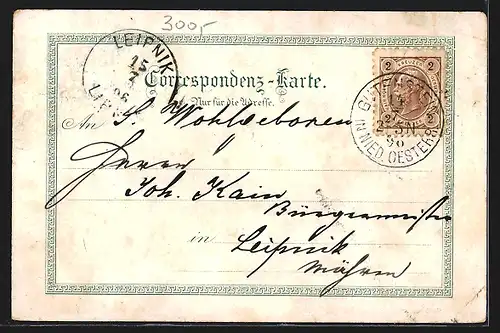 3005
LEIPNIK
15
7
96
Correspondenz-Karte.
Nur für die Adresse.
2 KREUZER 2
2 2
3N
96
NIED. OESTERR.
An S. Wohlgeboren
Herrn
Joh. Kain
Bürgermeister
in
Leipnik
Mähren